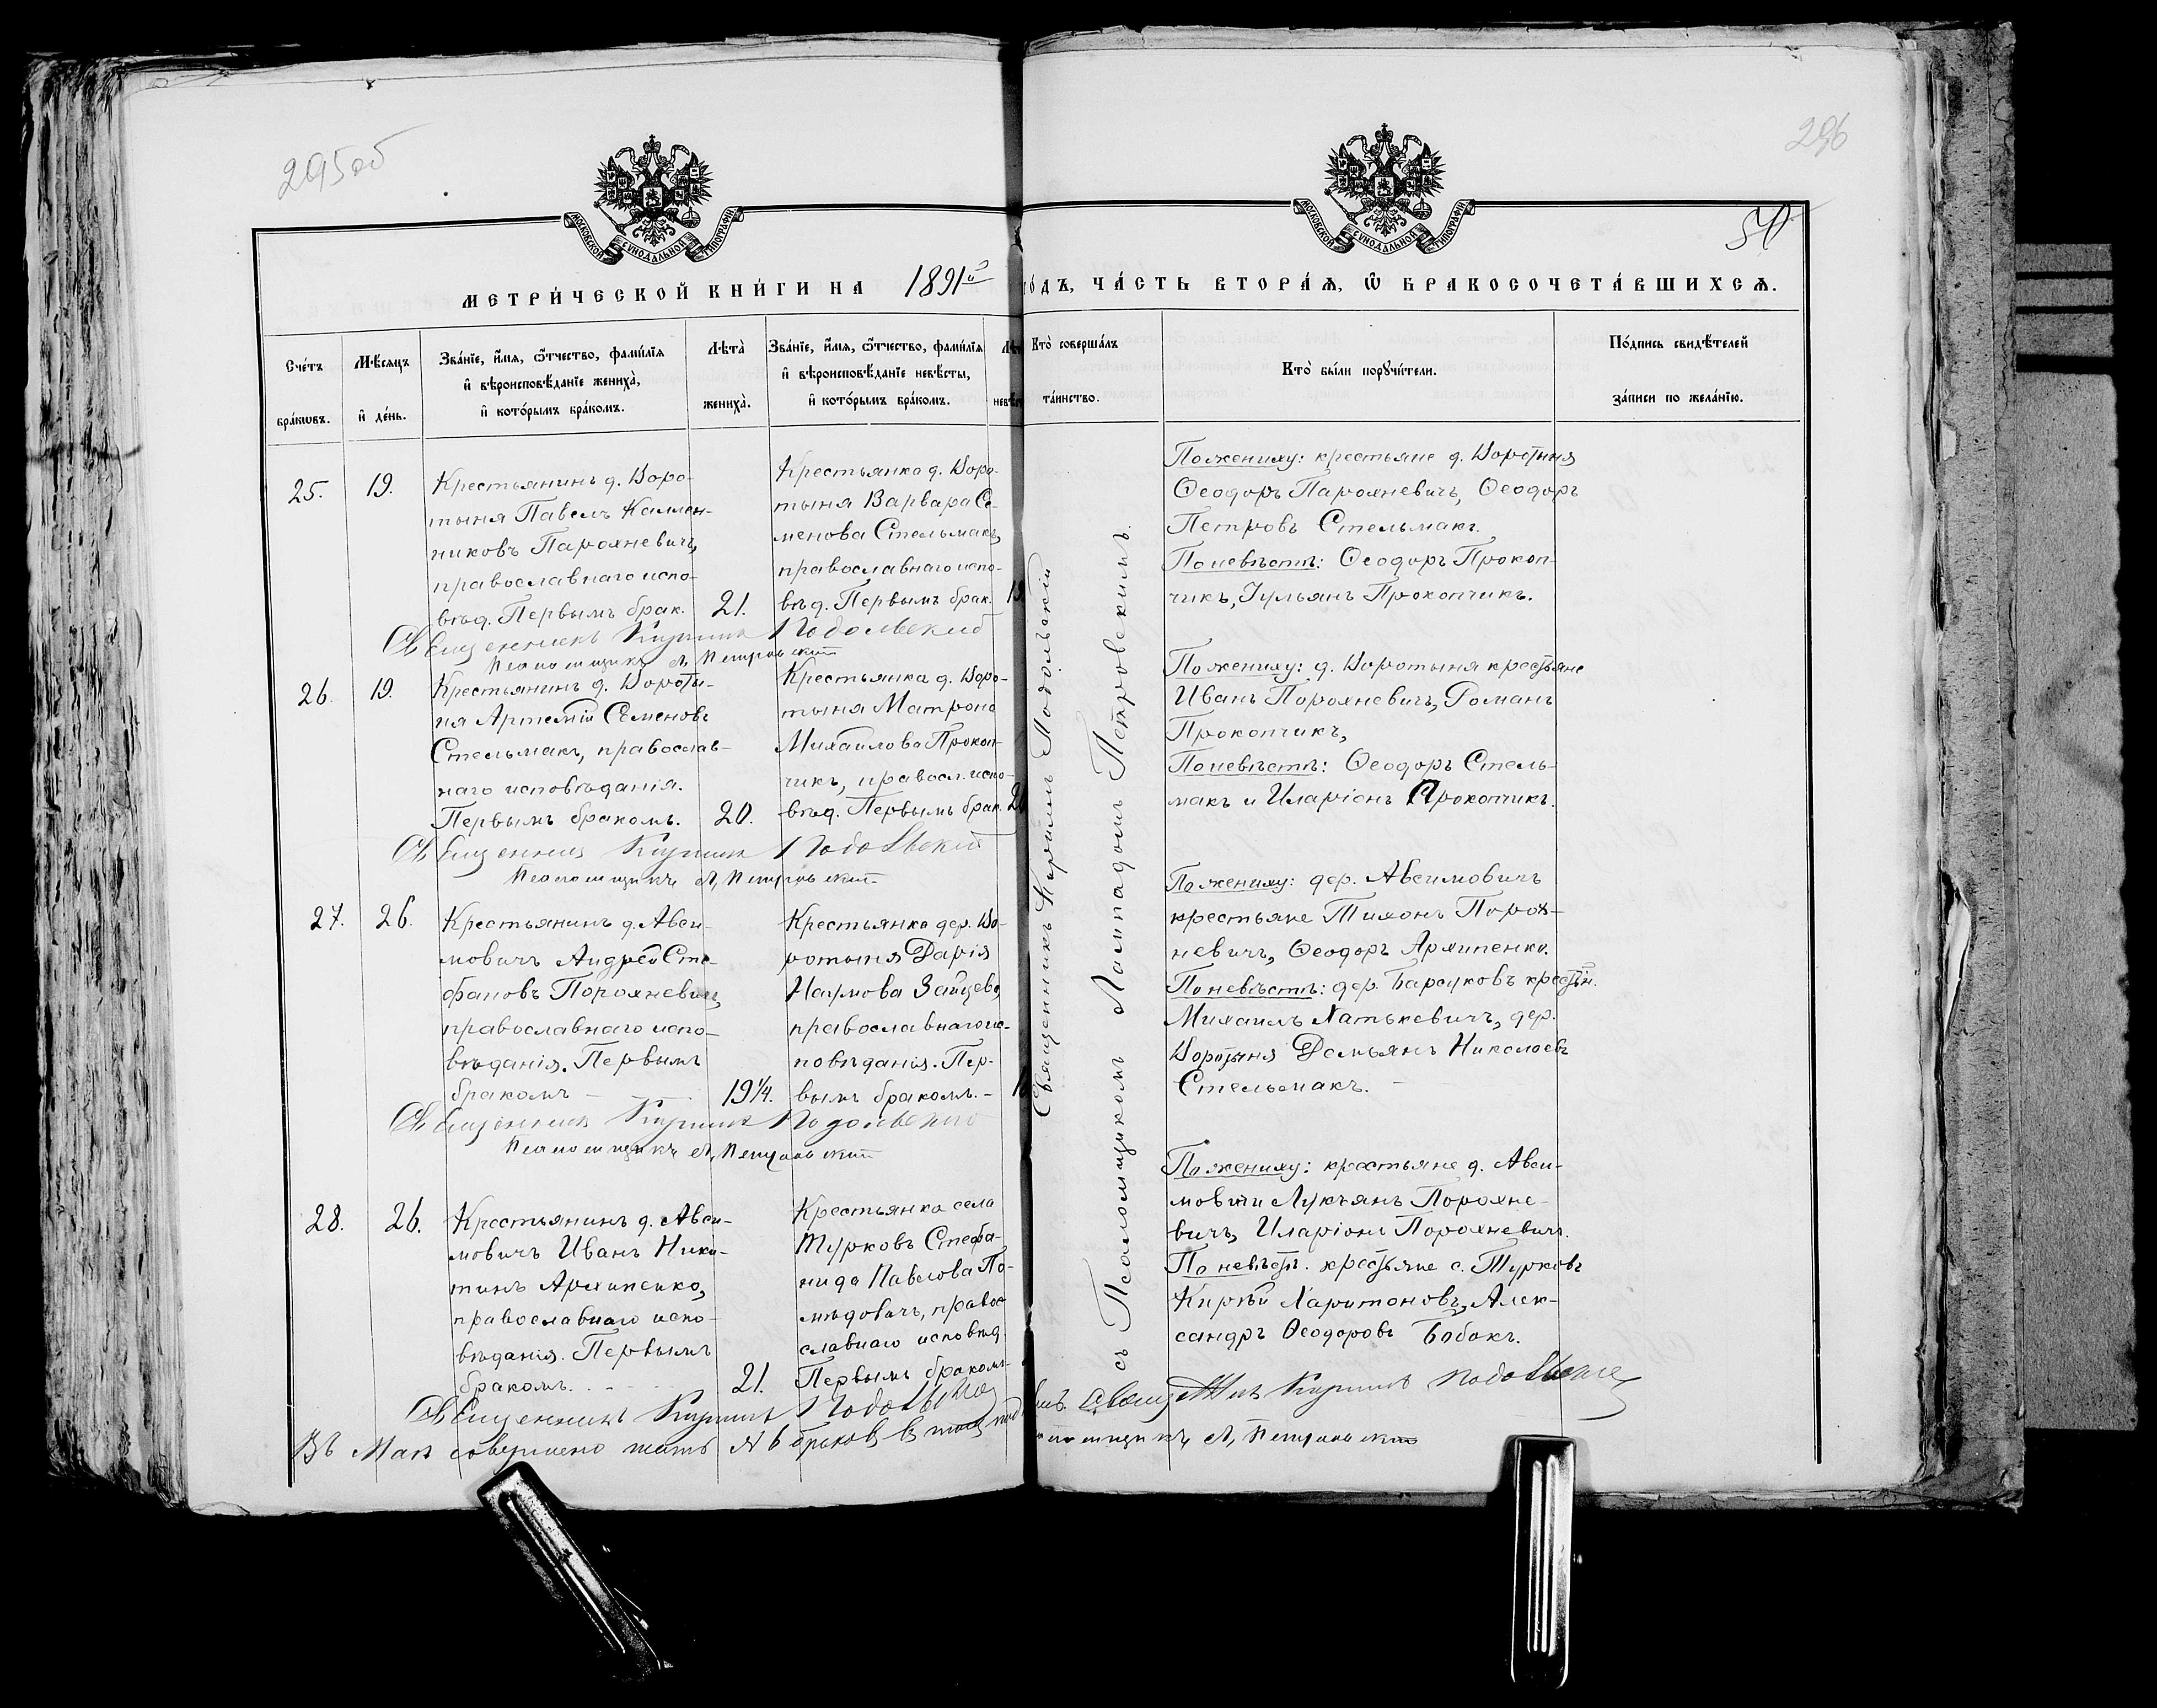 295 об
296
50
МОСКОВСКОЙ СѴНОДАЛЬНОЙ ТИПОГРАФІИ
МОСКОВСКОЙ СѴНОДАЛЬНОЙ ТИПОГРАФІИ
МЕТРИ́ЧЕСКОЙ КНИ́ГИ НА 1891й ГО́ДЪ, ЧА́СТЬ ВТОРА́Ѧ, Ѿ БРАКОСОЧЕТА́ВШИХСѦ.
Сче́тъ бра́кѡвъ.
Мѣ́сѧцъ и҆ де́нь.
Зва́нїе, и҆́мѧ, ѻ҆́тчество, фами́лїѧ
и҆ вѣроисповѣ́данїе жениха̀,
и҆ кото́рымъ бра́комъ.
Лѣта̀ жениха̀.
Зва́нїе, и҆́мѧ, ѻ҆́тчество, фами́лїѧ
и҆ вѣроисповѣ́данїе невѣ́сты,
и҆ кото́рымъ бра́комъ.
Кто̀ соверша́лъ
та́инство.
Кто̀ бы́ли порꙋчи́тели.
По́дпись свидѣ́телей
за́писи по жела́нїю.
25. 19.
Крестьянинъ д. Воро-
тыня Павелъ Каллен-
никовъ Парохневичъ,
православнаго испо-
вѣд. Первымъ брак. 21.
Крестьянка д. Воро-
тыня Варвара Се-
менова Стельмахъ,
православнаго испо-
вѣд. Первымъ брак.
По жениху: крестьяне д. Воротыня
Ѳеодоръ Парохневичъ, Ѳеодоръ
Петровъ Стельмахъ.
По невѣстѣ: Ѳеодоръ Прокоп-
чикъ, Іульянъ Прокопчикъ.
Священникъ Кириллъ Подольскій
Псаломщикъ Л. Петровскій
26. 19.
Крестьянинъ д. Вороты-
ня Артемій Семеновъ
Стельмахъ, православ-
наго исповѣданія.
Первымъ бракомъ. 20.
Крестьянка д. Воро-
тыня Матрона
Михайлова Прокоп-
чикъ, правосл. испо-
вѣд. Первымъ брак.
По жениху: д. Воротыня крестьяне
Иванъ Порохневичъ, Романъ
Прокопчикъ,
По невѣстѣ: Ѳеодоръ Стель-
махъ и Иларіонъ Прокопчикъ.
Священникъ Кириллъ Подольскій
Псаломщикъ Л. Петровскій
27. 26.
Крестьянинъ д. Авси-
мовичъ Андрей Сте-
фановъ Порохневичъ,
православнаго испо-
вѣданія. Первымъ
бракомъ 19¼.
Крестьянка дер. Во-
ротыня Дарія
Наумова Зайцева,
православнаго ис-
повѣданія. Пер-
вымъ бракомъ.
По жениху: дер. Авсимовичъ
крестьяне Тихонъ Порох-
невичъ, Ѳеодоръ Архипенко.
По невѣстѣ: дер. Барсуковъ крестьян.
Михаилъ Хатькевичъ, дер.
Воротыня Демьянъ Николаевъ
Стельмахъ.
Священникъ Кириллъ Подольскій
Псаломщикъ Л. Петровскій
28. 26.
Крестьянинъ д. Авси-
мовичъ Иванъ Ники-
тинъ Архипенко,
православнаго испо-
вѣданія. Первымъ
бракомъ. 21.
Крестьянка села
Турковъ Стефа-
нида Павлова По-
мѣдовичъ, правос-
славнаго исповѣд.
Первымъ бракомъ
По жениху: крестьяне д. Авси-
мовичи Лукьянъ Порохне-
вичъ, Иларіонъ Порохневичъ.
По невѣстѣ. крестьяне с. Турковъ
Кирѣй Харитоновъ, Алек-
сандръ Ѳеодоровъ Бобокъ.
Священникъ Кириллъ Подольскій
Священникъ Кириллъ Подольскій
съ Псаломщикомъ Лампадомъ Петровскимъ.
Въ Маѣ совершено браковъ
Священникъ Кириллъ Подольскій
Псаломщикъ Л. Петровскій